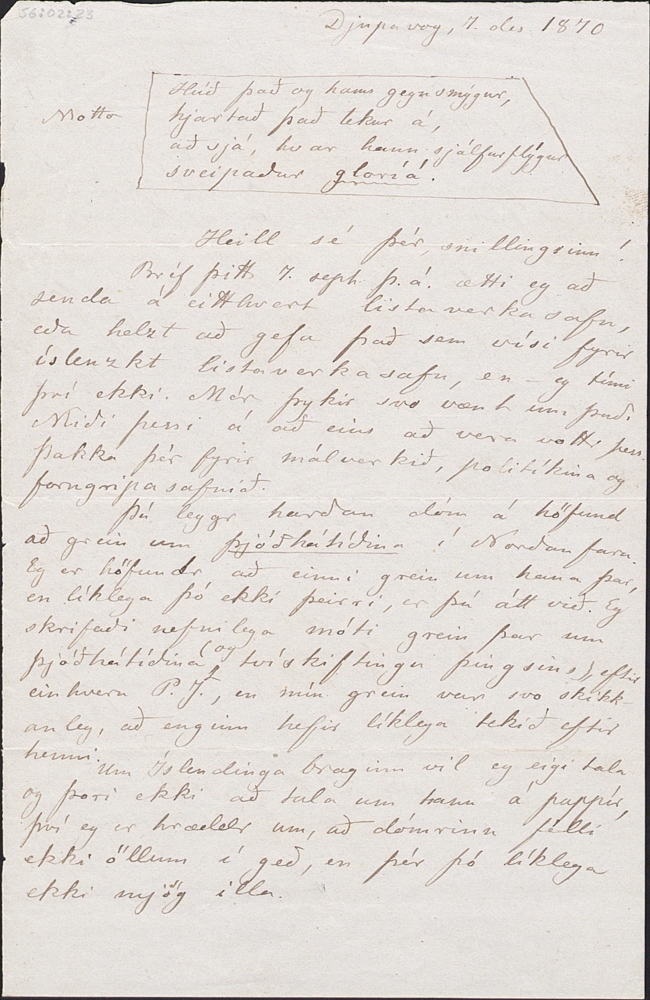 56:02:23
Djupavog, 7. des. 1870
Motto
Húð það og hams gegnsmýgur,
hjartað það tekur á,
að sjá, hvar hann sjálfur flýgur
sveipaður gloríá.
Heill sé þér, snillingsinn!
Bréf þitt 7. sept. þ.á. ætti eg að
senda á eitthvert listaverkasafn,
eða helzt að gefa það sem vísi fyrir
íslenzkt listaverkasafn, en – eg tími
því ekki. Mér þykir svo vænt um það.
Miði þessi á að eins að vera vottr þess
þakka þér fyrir málverkið, politíkina og
forngripasafnið.
Þú leggr harðan dóm á höfund
að grein um þjóðhátíðina í Norðanfara.
Eg er höfundr að einni grein um hana þar,
en líklega þó ekki þeirri, er þú átt við. Eg
skrifaði nefnilega móti grein þar um
þjóðhátíðina og tvískiftingu þingsins, eftir
einhvern P. J., en mín grein var svo skikk-
anleg, að enginn hefir líklega tekið eftir
henni.
Um Íslendinga braginn vil eg eigi tala
og þori ekki að tala um hann á pappír,
því eg er hræddr um, að dómrinn félli
ekki öllum í geð, en þér þó líklega
ekki mjög illa.